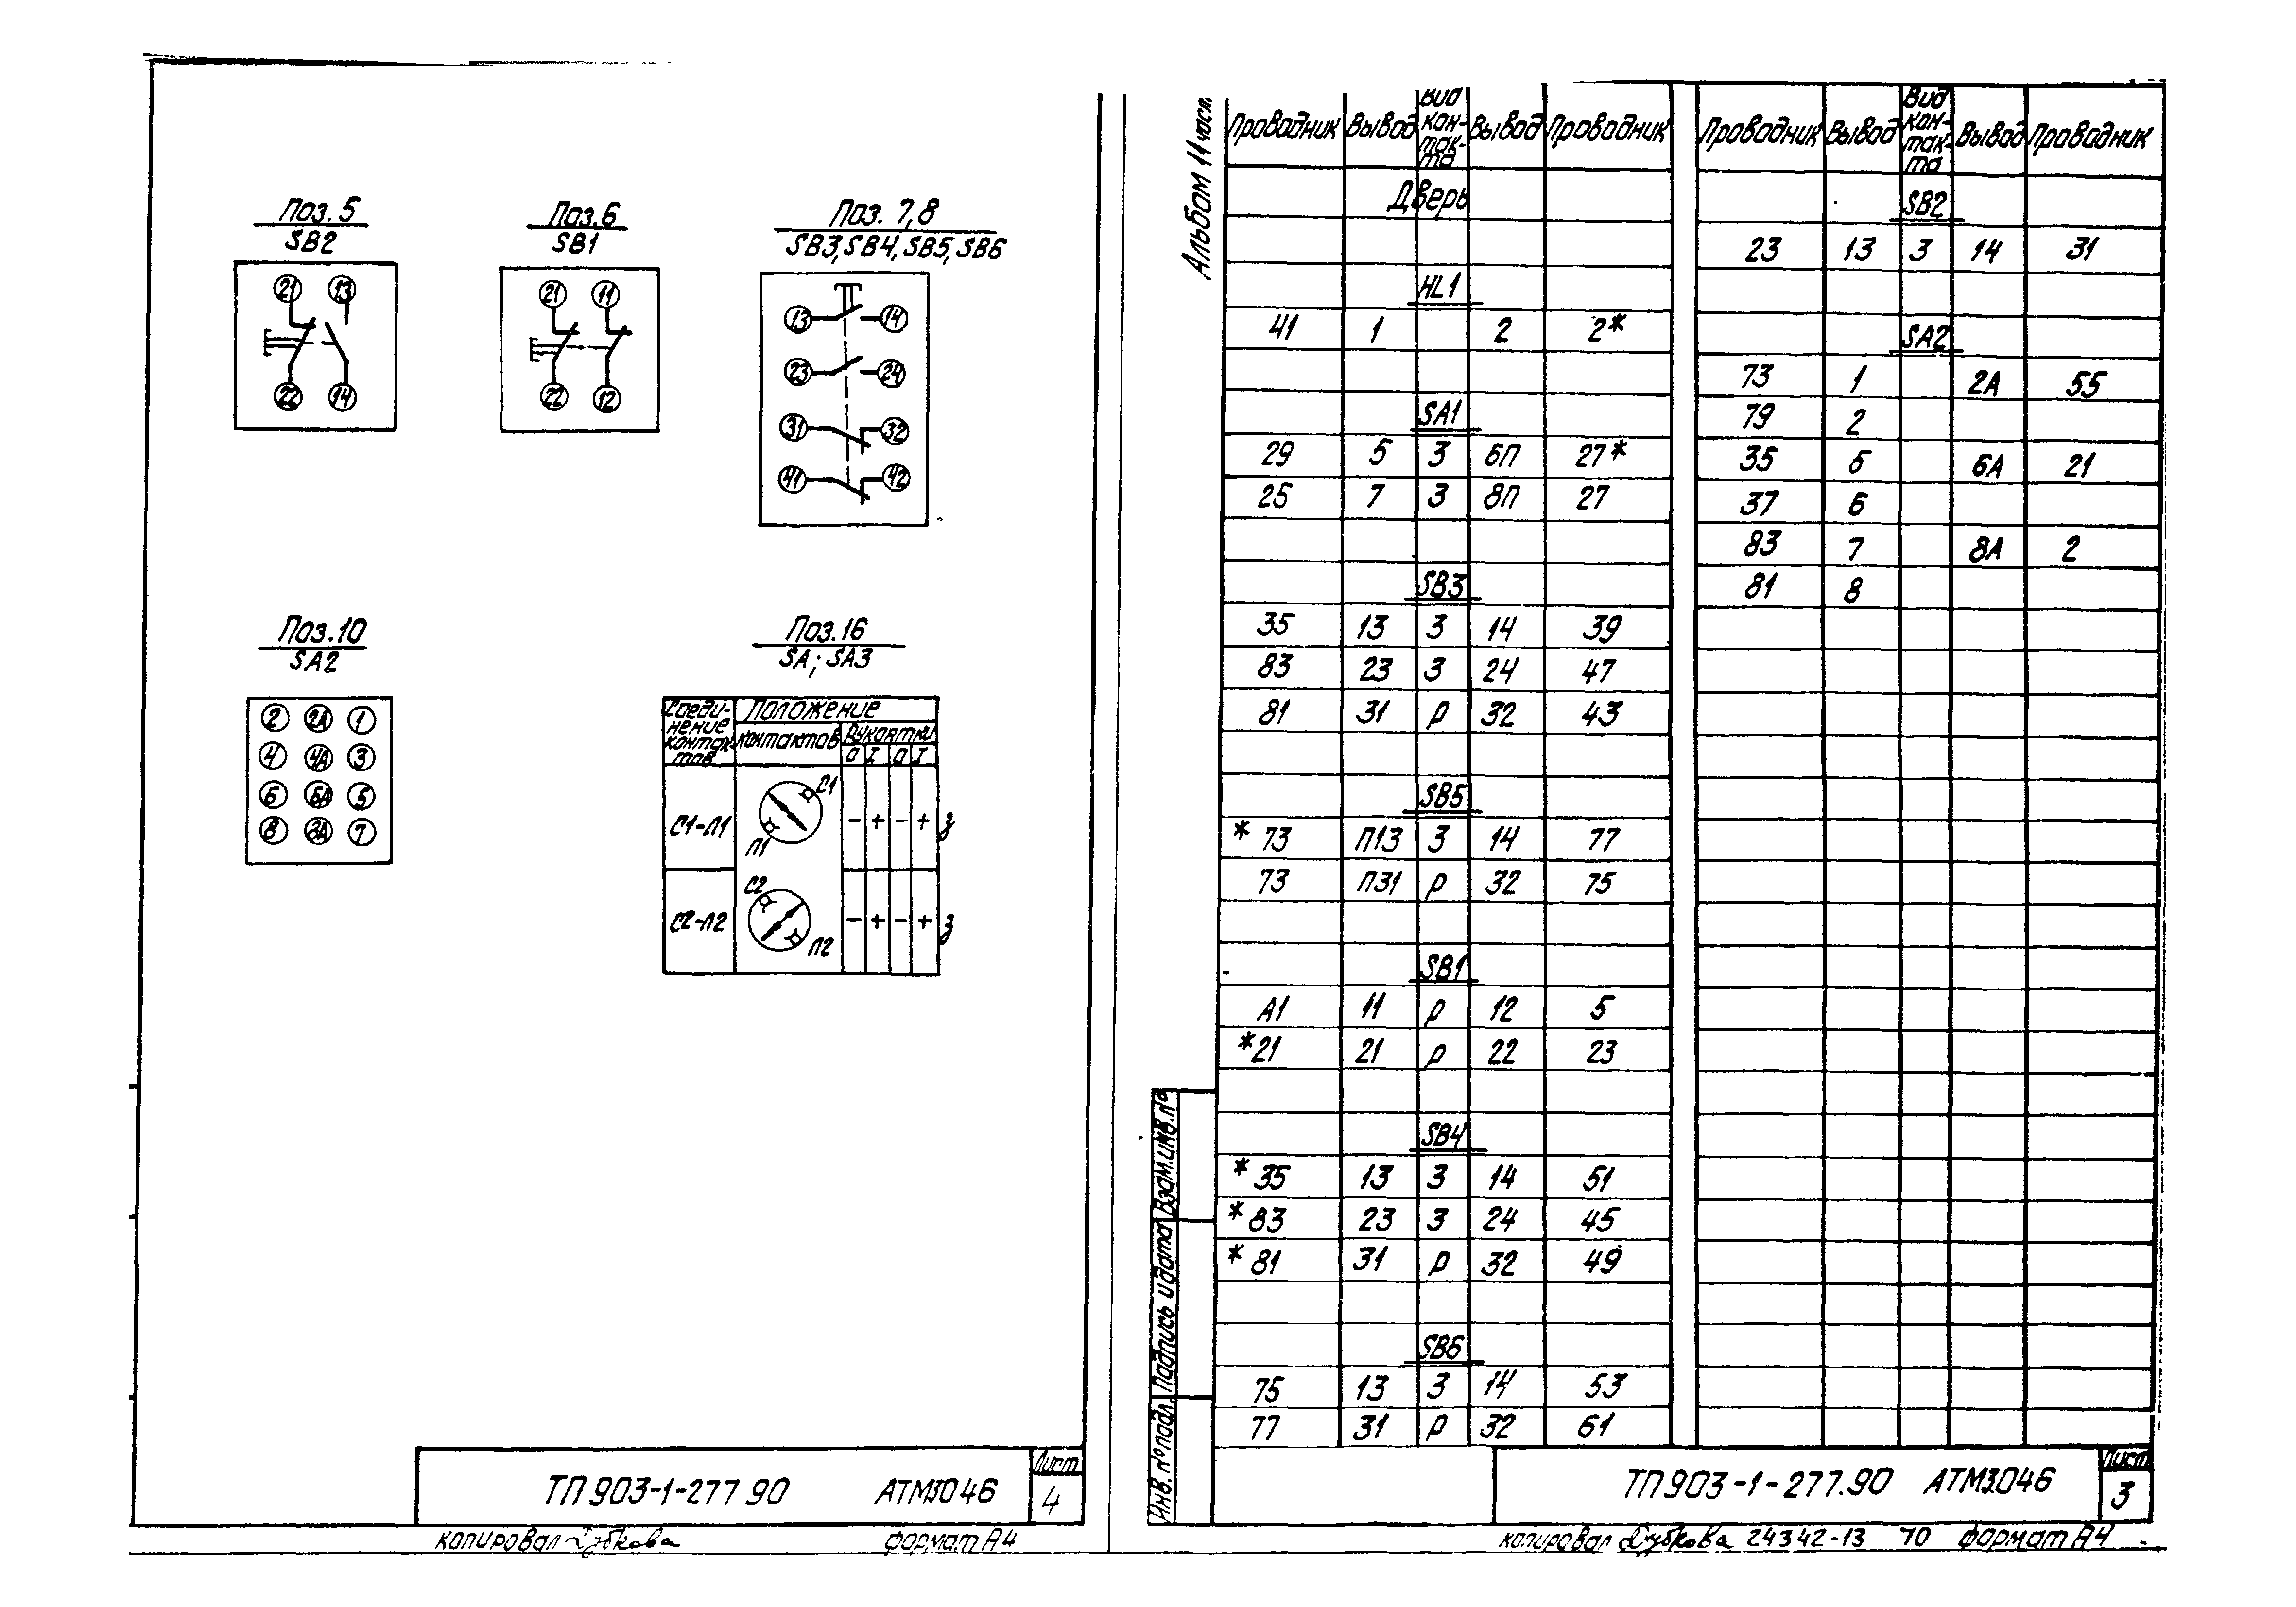 Поз. 5
SB2
21 13
22 14
Поз. 6
SB1
21 11
22 12
Поз. 7,8
SB3, SB4, SB5, SB6
13 14
23 24
31 32
41 42
Поз. 10
SA2
2 2А 1
4 4А 3
6 6А 5
8 8А 7
Поз. 16
SA; SA3
Соеди-
нение
контак-
тов
Положение
контактов
Рукоятки
0 I 0 I
С1-Л1 С1 Л1 - + - + З
С2-Л2 С2 Л2 - + - + З
ТП 903-1-277.90 АТМ3.046
Лист
4
копировал Дубкова формат А4
Альбом 11 част.
Проводник Вывод Вид кон-так-та Вывод Проводник
Дверь
HL1
41 1 2 2*
SA1
29 5 З 6П 27*
25 7 З 8П 27
SB3
35 13 З 14 39
83 23 З 24 47
81 31 Р 32 43
SB5
*73 П13 З 14 77
73 П31 Р 32 75
SB1
А1 11 Р 12 5
*21 21 Р 22 23
SB4
*35 13 З 14 51
*83 23 З 24 45
*81 31 Р 32 49
SB6
75 13 З 14 53
77 31 Р 32 61
Проводник Вывод Вид кон-так-та Вывод Проводник
SB2
23 13 З 14 31
SA2
73 1 2А 55
79 2
35 5 6А 21
37 6
83 7 8А 2
81 8
Инв. № подл. Подпись и дата Взам. инв. №
ТП 903-1-277.90 АТМ3.046
Лист
3
копировал Дубкова 24342-13 10 формат А4